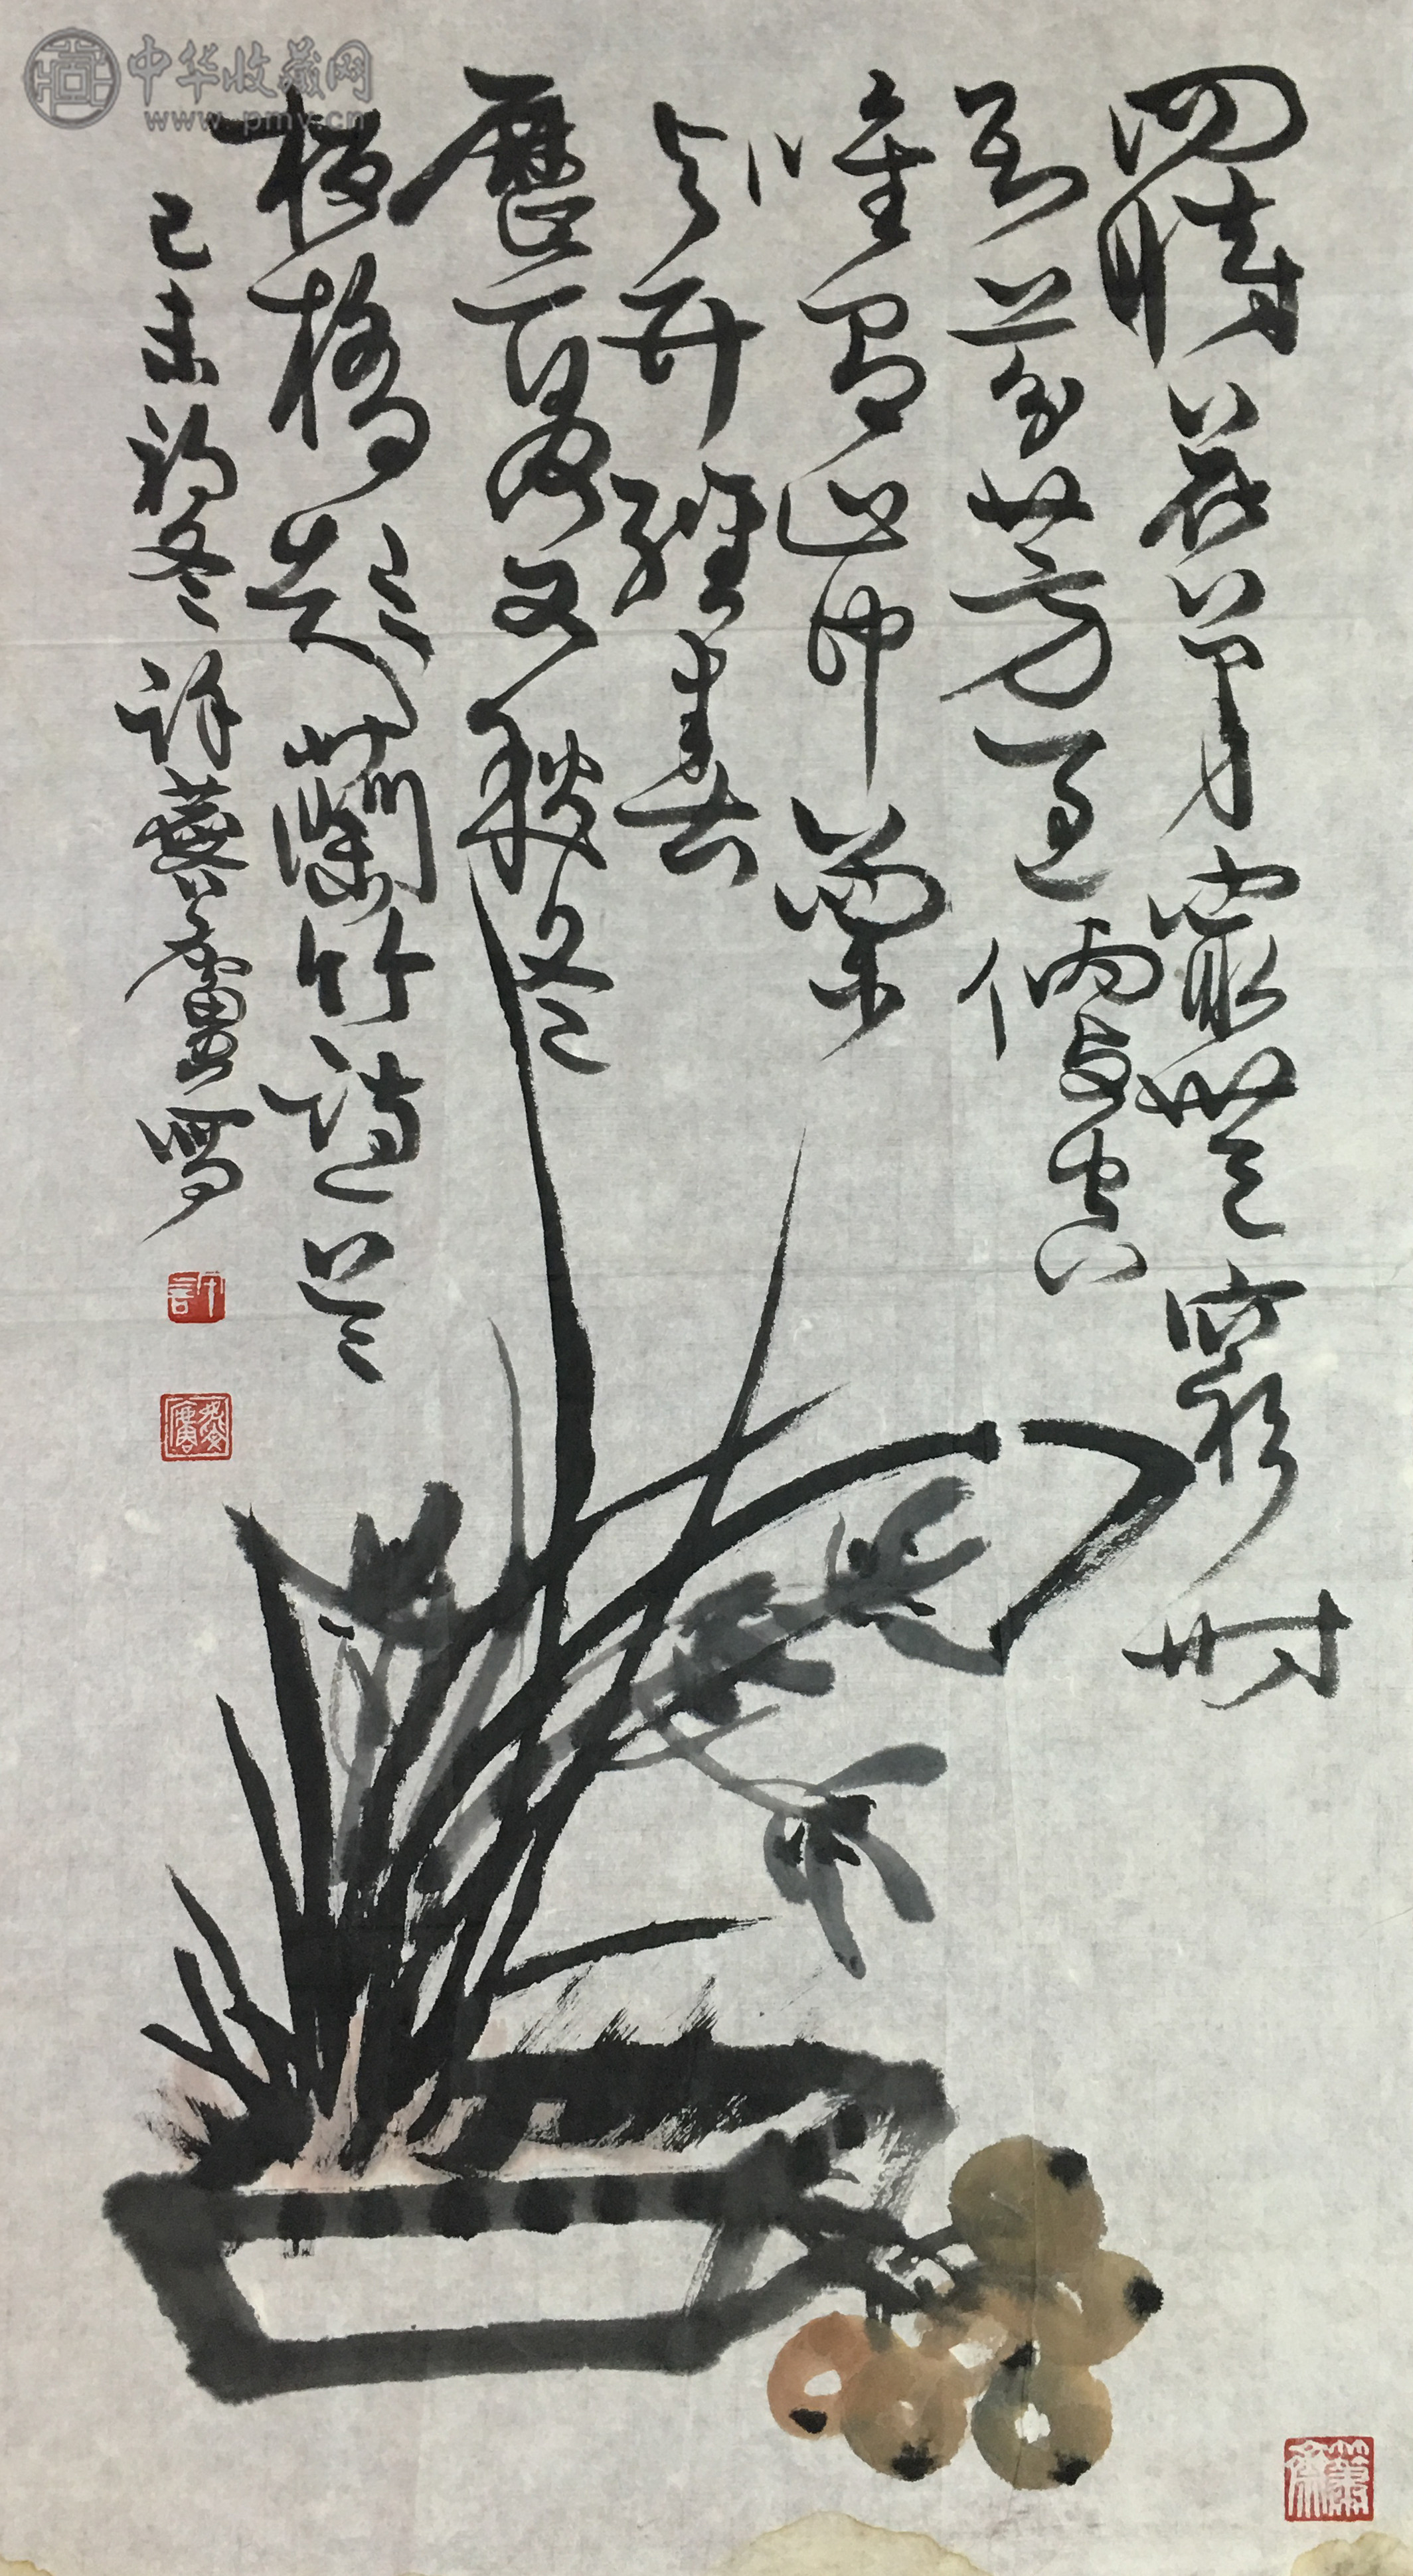 中华收藏网
www.pmv.cn
四時花草最無窮時
到芬芳過便空
唯有山中蘭
与竹經春
歷夏又秋冬
板橋題蘭竹詩
己未初冬許麐廬寫
許
麐廬